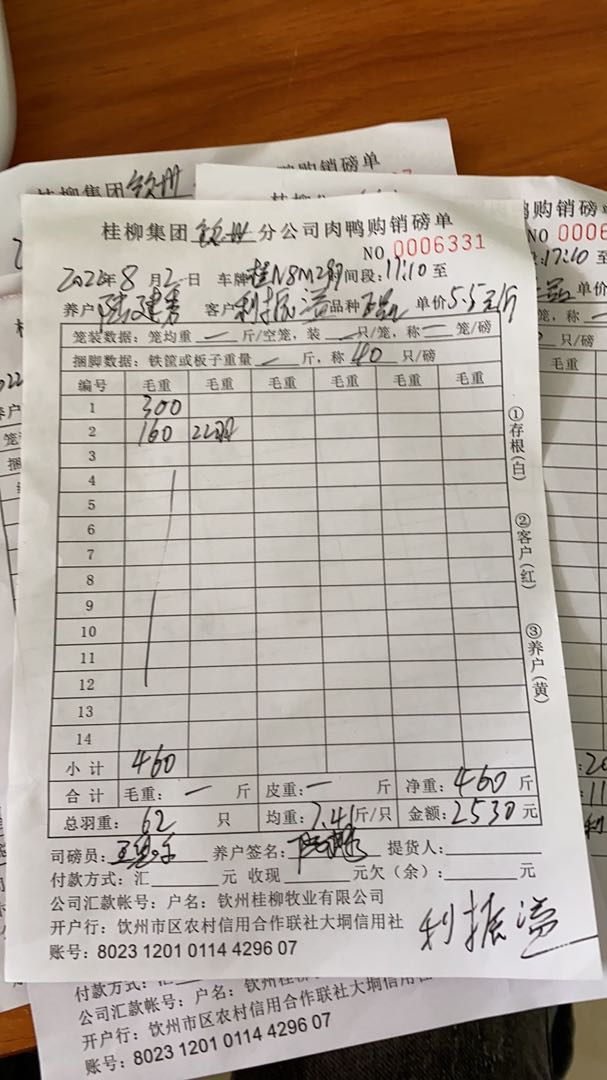 桂柳集团钦州分公司肉鸭购销磅单
NO 0006331
2022年8月2日 车牌桂N8M2 时间段:17:10至
养户 陆建秀 客户 利振溢 品种 单价5.5元/斤
笼装数据:笼均重 — 斤/空笼,装 — 只/笼,称 — 笼/磅
捆脚数据:铁筐或板子重量 — 斤,称 40 只/磅
编号 毛重 毛重 毛重 毛重 毛重 毛重
1 300
2 160 22羽
3
4
5
6
7
8
9
10
11
12
13
14
小计 460
合计 毛重: — 斤 皮重: — 斤 净重: 460 斤
总羽重: 62 只 均重: 7.41 斤/只 金额: 2530 元
司磅员: 养户签名: 提货人:
付款方式:汇 元 收现 元欠(余): 元
公司汇款帐号:户名:钦州桂柳牧业有限公司
开户行:钦州市区农村信用合作联社大垌信用社
账号:8023 1201 0114 4296 07
利振溢
①存根(白)
②客户(红)
③养户(黄)
桂柳集团钦州
鸭购销磅单
鸭购销磅单
NO 0006
:17:10 至
单价
只/磅
毛重
付款方式:汇
公司汇款帐号:户名:钦州桂
开户行:钦州市区农村信用合作联社大垌信用社
账号:8023 1201 0114 4296 07